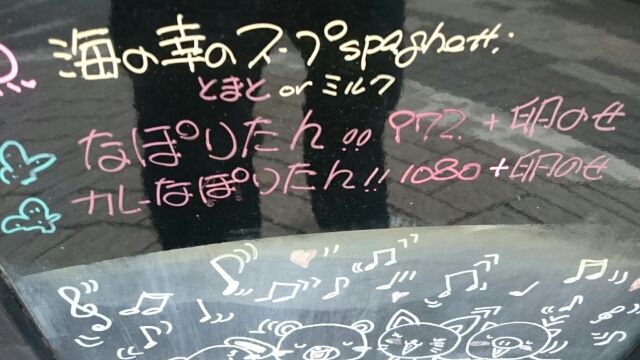 海の幸のスープspaghetti:
とまと or ミルク
なぽりたん。。972 +卵のせ
カレーなぽりたん!! 1080 +卵のせ